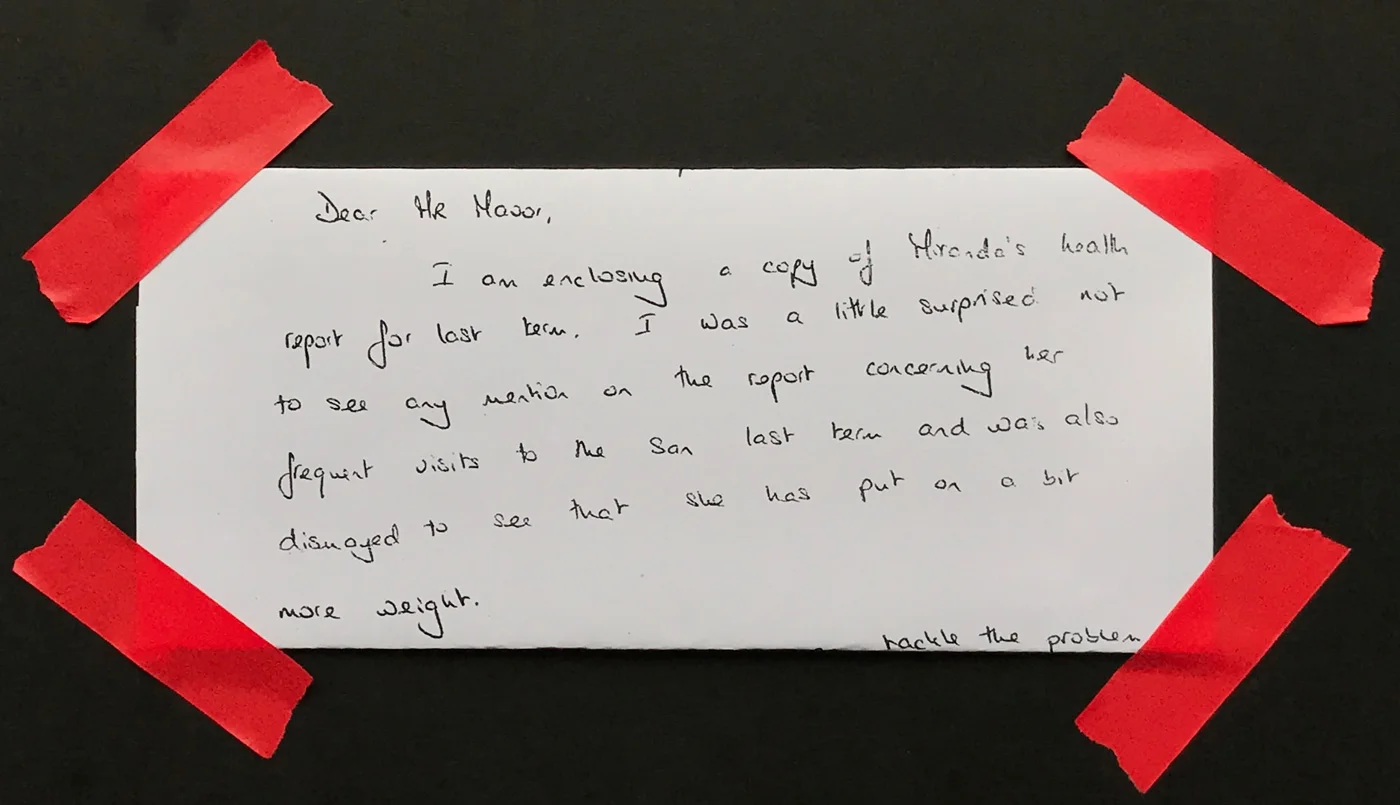 Dear Mr Mavor,
I am enclosing a copy of Miranda's health
report for last term. I was a little surprised not
to see any mention on the report concerning her
frequent visits to the San last term and was also
dismayed to see that she has put on a bit
more weight.
tackle the problem